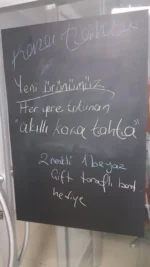 Yeni ürünümüz
Her yere tutunan
"akıllı kara tahta"
2 renkli 1 beyaz
Çift taraflı bant
hediye